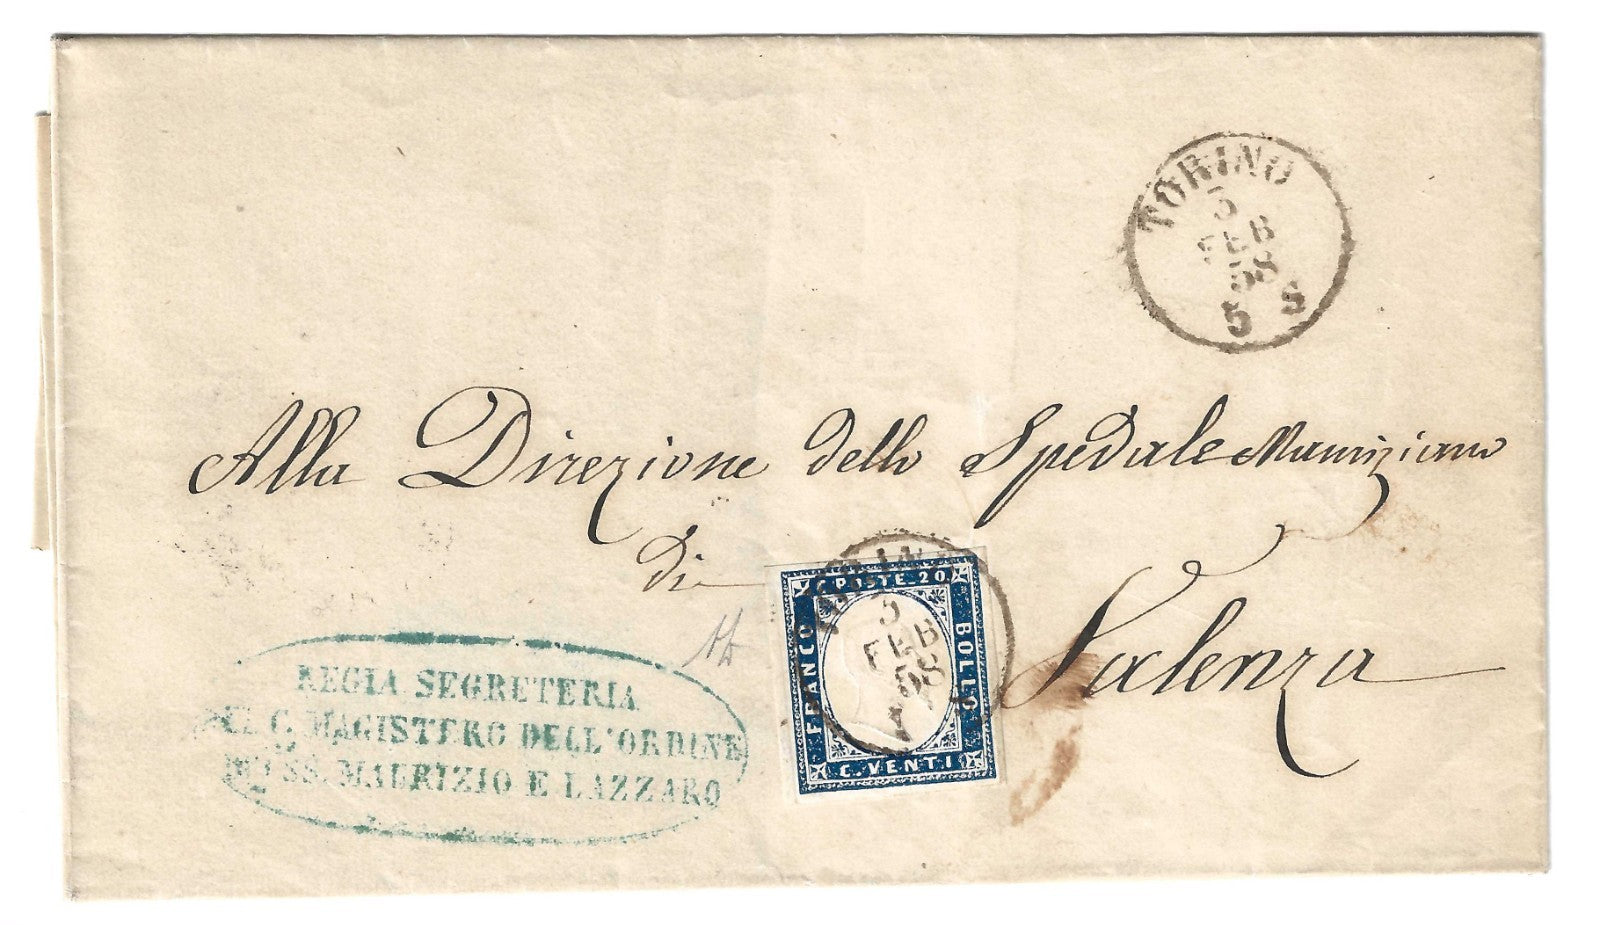 TORINO
5
FEB
58
5 S
Alla Direzione dello Spedale Mauriziano
di
Valenza
TORINO
5
FEB
58
C. POSTE. 20
FRANCO
BOLLO
C. VENTI
REGIA SEGRETERIA
DEL G. MAGISTERO DELL'ORDINE
DE' SS. MAURIZIO E LAZZARO